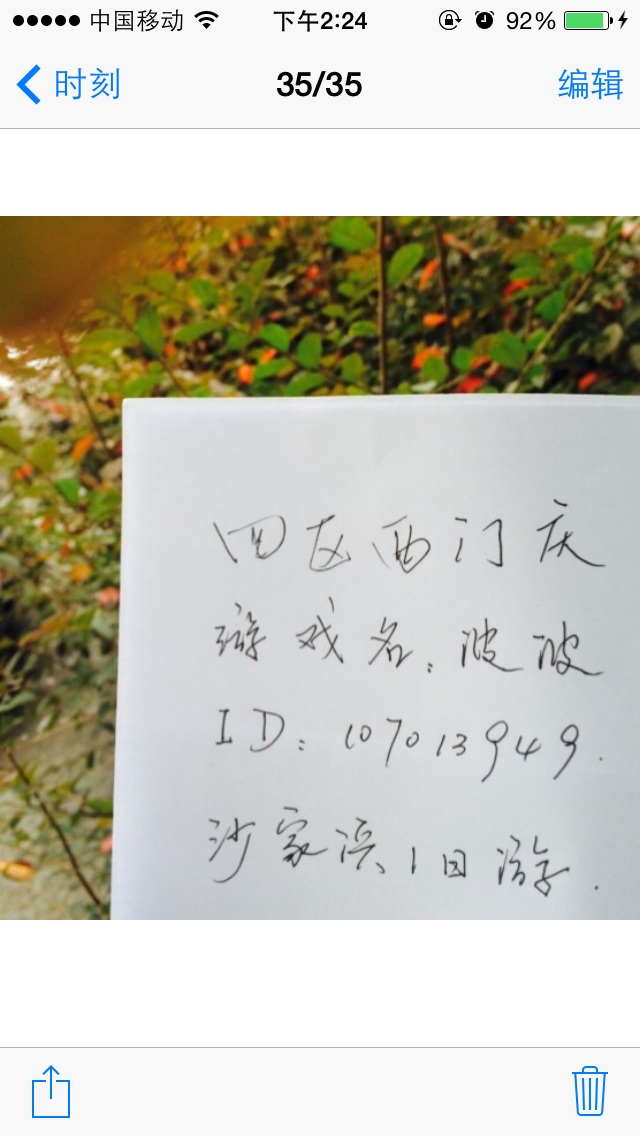 中国移动 下午2:24 92%
时刻 35/35 编辑
四区西门庆
游戏名:波波
ID:107013949.
沙家浜1日游.